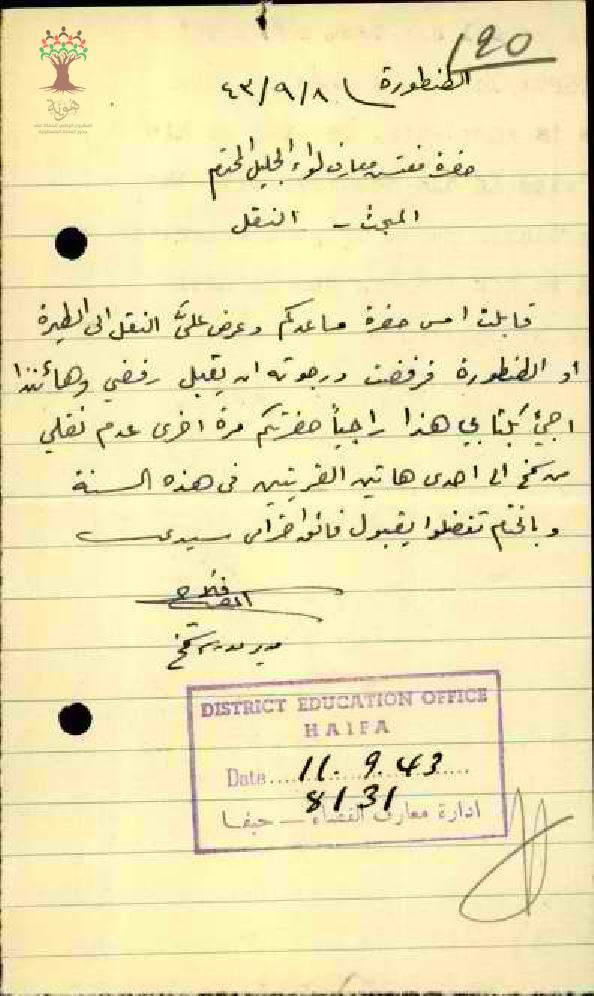 120
الطنطورة ٤٣/٩/٨
هوية
حضرة مفتش معارف لواء الجليل المحترم
المبحث - النقل
قابلت امس حضرة مساعدكم وعرض عليّ النقل الى الطيرة
او الطنطورة فرفضت ورجوته ان يقبل رفضي وهائنذا
اجيئ بكتابي هذا راجياً حضرتكم مرة اخرى عدم نقلي
من سمخ الى احدى هاتين القريتين في هذه السنة
وبالختام تفضلوا بقبول فائق احترامي سيدي
مدير مدرسة سمخ
DISTRICT EDUCATION OFFICE
HAIFA
Date 11.9.43
8131
ادارة معارف القضاء — حيفا